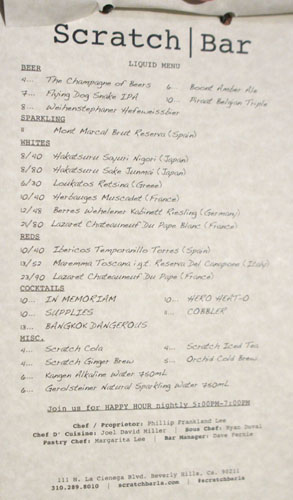 Scratch|Bar
LIQUID MENU
BEER
4... The Champagne of Beers
7... Flying Dog Snake IPA
8... Weihenstephaner Hefeweissbier
6... Boont Amber Ale
10... Piraat Belgian Triple
SPARKLING
8 Mont Marcal Brut Reserva (Spain)
WHITES
8/40 Hakatsuru Sayuri Nigori (Japan)
8/80 Hakatsuru Sake Junmai (Japan)
6/30 Loukatos Retsina (Greece)
10/40 Herbauges Muscadet (France)
12/48 Berres Wehelener Kabinett Riesling (Germany)
21/80 Lazaret Chateauneuf Du Pape Blanc (France)
REDS
10/40 Ibericos Temporanillo Torres (Spain)
13/52 Maremma Toscana igt. Reserva Del (Italy)
23/90 Lazaret Chateauneuf Du Pape (France)
COCKTAILS
10... IN MEMORIAM
10... SUPPLIES
13... BANGKOK DANGEROUS
10... HERO
COBBLER
MISC.
4... Scratch Cola
4... Scratch Ginger Brew
6... Kangen Alkaline Water 750mL
6... Gerolsteiner Natural Sparkling Water 750mL
4... Scratch Iced Tea
5... Orchid Cold Brew
Join us for HAPPY HOUR nightly 5:00PM-7:00PM
Chef / Proprietor: Phillip Frankland Lee
Chef D' Cuisine: Joel David Miller | Sous Chef: Ryan Duval
Pastry Chef: Margarita Lee | Bar Manager: Dave Fernie
111 N. La Cienega Blvd. Beverly Hills, Ca. 90211
310.289.8010 | Scratchbarla.com | @scratchbarla